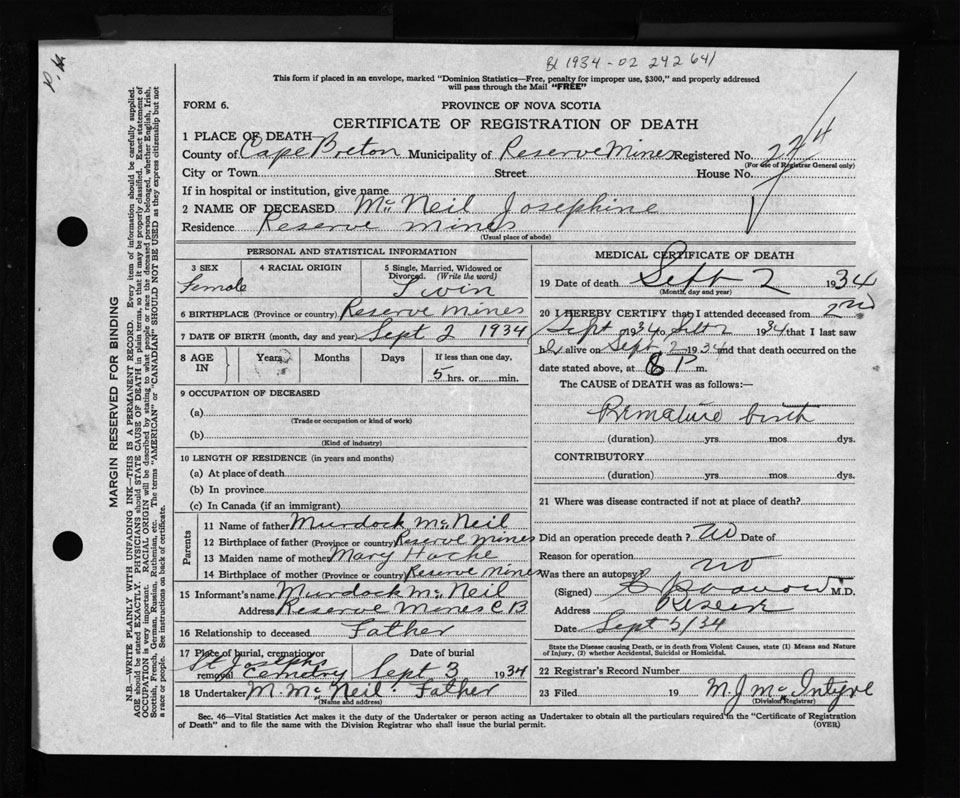 Bl 1934 - 02 242 641
P.H.
This form if placed in an envelope, marked "Dominion Statistics—Free, penalty for improper use, $300," and properly addressed
will pass through the Mail "FREE"
FORM 6.
PROVINCE OF NOVA SCOTIA
CERTIFICATE OF REGISTRATION OF DEATH
1 PLACE OF DEATH
County of Cape Breton Municipality of Reserve Mines Registered No.
(For use of Registrar General only)
City or Town Street House No.
If in hospital or institution, give name
2 NAME OF DECEASED McNeil Josephine
Residence Reserve Mines
(Usual place of abode)
PERSONAL AND STATISTICAL INFORMATION
3 SEX 4 RACIAL ORIGIN 5 Single, Married, Widowed or
Divorced. (Write the word)
Female Twin
6 BIRTHPLACE (Province or country) Reserve Mines
7 DATE OF BIRTH (month, day and year) Sept 2 1934
8 AGE IN Years Months Days If less than one day,
5 hrs. or min.
9 OCCUPATION OF DECEASED
(a)
(Trade or occupation or kind of work)
(b)
(Kind of industry)
10 LENGTH OF RESIDENCE (in years and months)
(a) At place of death
(b) In province
(c) In Canada (if an immigrant)
Parents
11 Name of father Murdock McNeil
12 Birthplace of father (Province or country) Reserve Mines
13 Maiden name of mother Mary Hache
14 Birthplace of mother (Province or country) Reserve Mines
15 Informant's name Murdock McNeil
Address Reserve Mines C B
16 Relationship to deceased Father
17 Place of burial, cremation or removal Date of burial
St Josephs Cemetry Sept 3 1934
18 Undertaker M. McNeil Father
(Name and address)
MEDICAL CERTIFICATE OF DEATH
19 Date of death Sept 2 1934
(Month, day and year)
20 I HEREBY CERTIFY that I attended deceased from 2nd
Sept 1934 to Sept 2 1934 that I last saw
her alive on Sept 2 1934 and that death occurred on the
date stated above, at 8 P m.
The CAUSE of DEATH was as follows:—
Premature birth
(duration) yrs. mos. dys.
CONTRIBUTORY
(duration) yrs. mos. dys.
21 Where was disease contracted if not at place of death?
Did an operation precede death? no Date of
Reason for operation
Was there an autopsy? no
(Signed) M.D.
Address Reserve
Date Sept 5/34
State the Disease causing Death, or in death from Violent Causes, state (1) Means and Nature
of Injury, (2) whether Accidental, Suicidal or Homicidal.
22 Registrar's Record Number
23 Filed 19 M. J. McIntyre
(Division Registrar)
Sec. 46—Vital Statistics Act makes it the duty of the Undertaker or person acting as Undertaker to obtain all the particulars required in the "Certificate of Registration
of Death" and to file the same with the Division Registrar who shall issue the burial permit.
(OVER)
MARGIN RESERVED FOR BINDING
N.B.—WRITE PLAINLY WITH UNFADING INK—THIS IS A PERMANENT RECORD. Every item of information should be carefully supplied.
AGE should be stated EXACTLY. PHYSICIANS should STATE CAUSE OF DEATH in plain terms, so that it may be properly classified. Exact statement of
OCCUPATION is very important. RACIAL ORIGIN will be described by stating to what people or race the deceased person belonged, whether English, Irish,
Scottish, French, German, Russian, Ruthenian, etc. The terms "AMERICAN" or "CANADIAN" SHOULD NOT BE USED as they express citizenship but not
a race or people. See instructions on back of certificate.